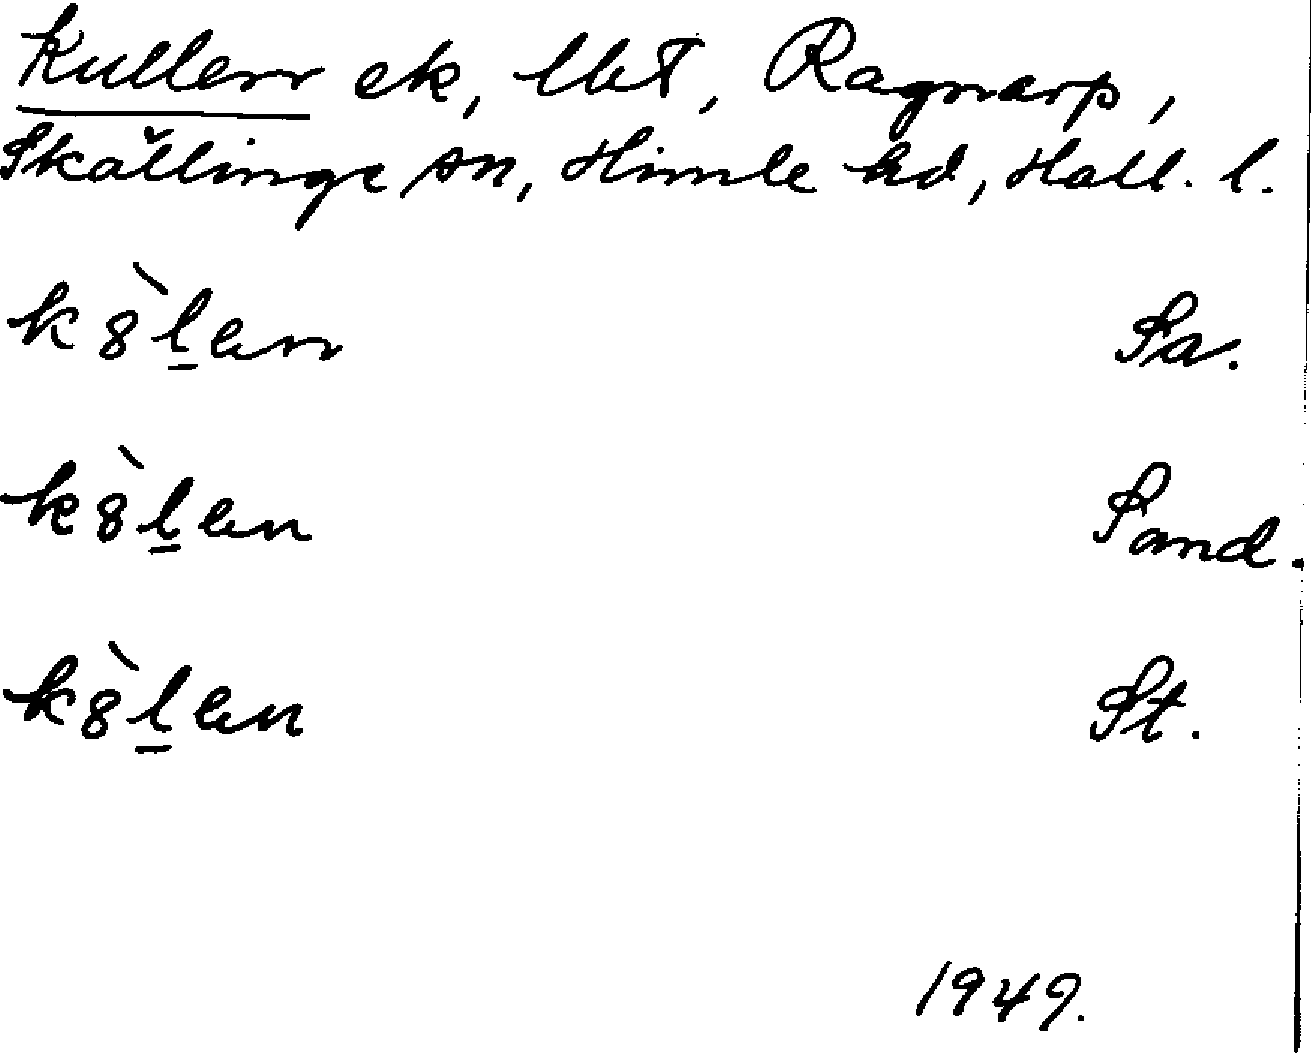 Kullen ek, lht, Ragnarp,
Skällinge sn, Himle hd, Hall. l.
k8̀l̲en Sa.
k8̀l̲en Sand.
k8̀l̲en St.
1949.